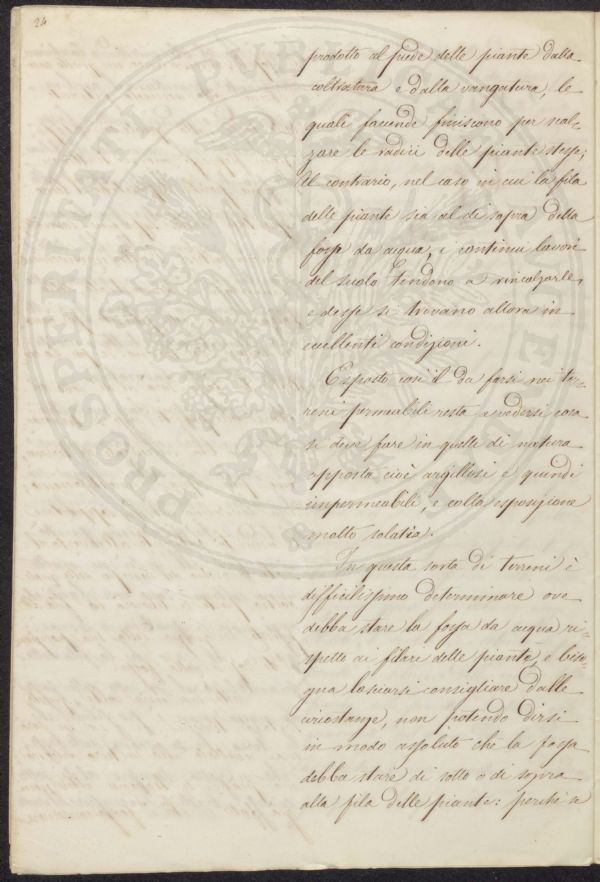 24
prodotto al piede delle piante dalla
coltratura e dalla vangatura, le
quali faccende finiscono per scal-
zare le radici delle piante stesse;
Al contrario, nel caso in cui la fila
delle piante sia al di sopra della
fossa da acqua, i continui lavori
del suolo tendono a rincalzarle,
e desse si trovano allora in
eccellenti condizioni.
Esposto così il da farsi nei ter-
reni permeabili resta a vedersi cosa
si deve fare in quelli di natura
opposta cioè argillosi e quindi
impermeabili, e colla esposizione
molto solatia.
In questa sorta di terreni è
difficilissimo determinare ove
debba stare la fossa da acqua ri-
spetto ai filari delle piante, e biso-
gna lasciarsi consigliare dalle
circostanze, non potendo dirsi
in modo assoluto che la fossa
debba stare di sotto o di sopra
alla fila delle piante: perchè se
PROSPERITATI PUBLICAE